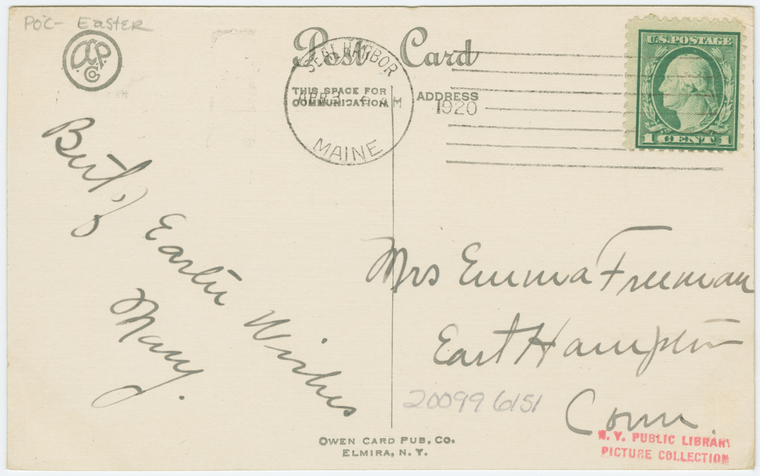 PoC- Easter
O.C.P. Co.
Post Card
SEAL HARBOR
APR 3 AM
1920
MAINE
THIS SPACE FOR
COMMUNICATION
ADDRESS
U.S. POSTAGE
1 CENT 1
Best of
Easter Wishes
Mary.
Mrs Emma Freeman
East Hampton
Conn.
20099 6151
N. Y. PUBLIC LIBRARY
PICTURE COLLECTION
OWEN CARD PUB. CO.
ELMIRA, N. Y.